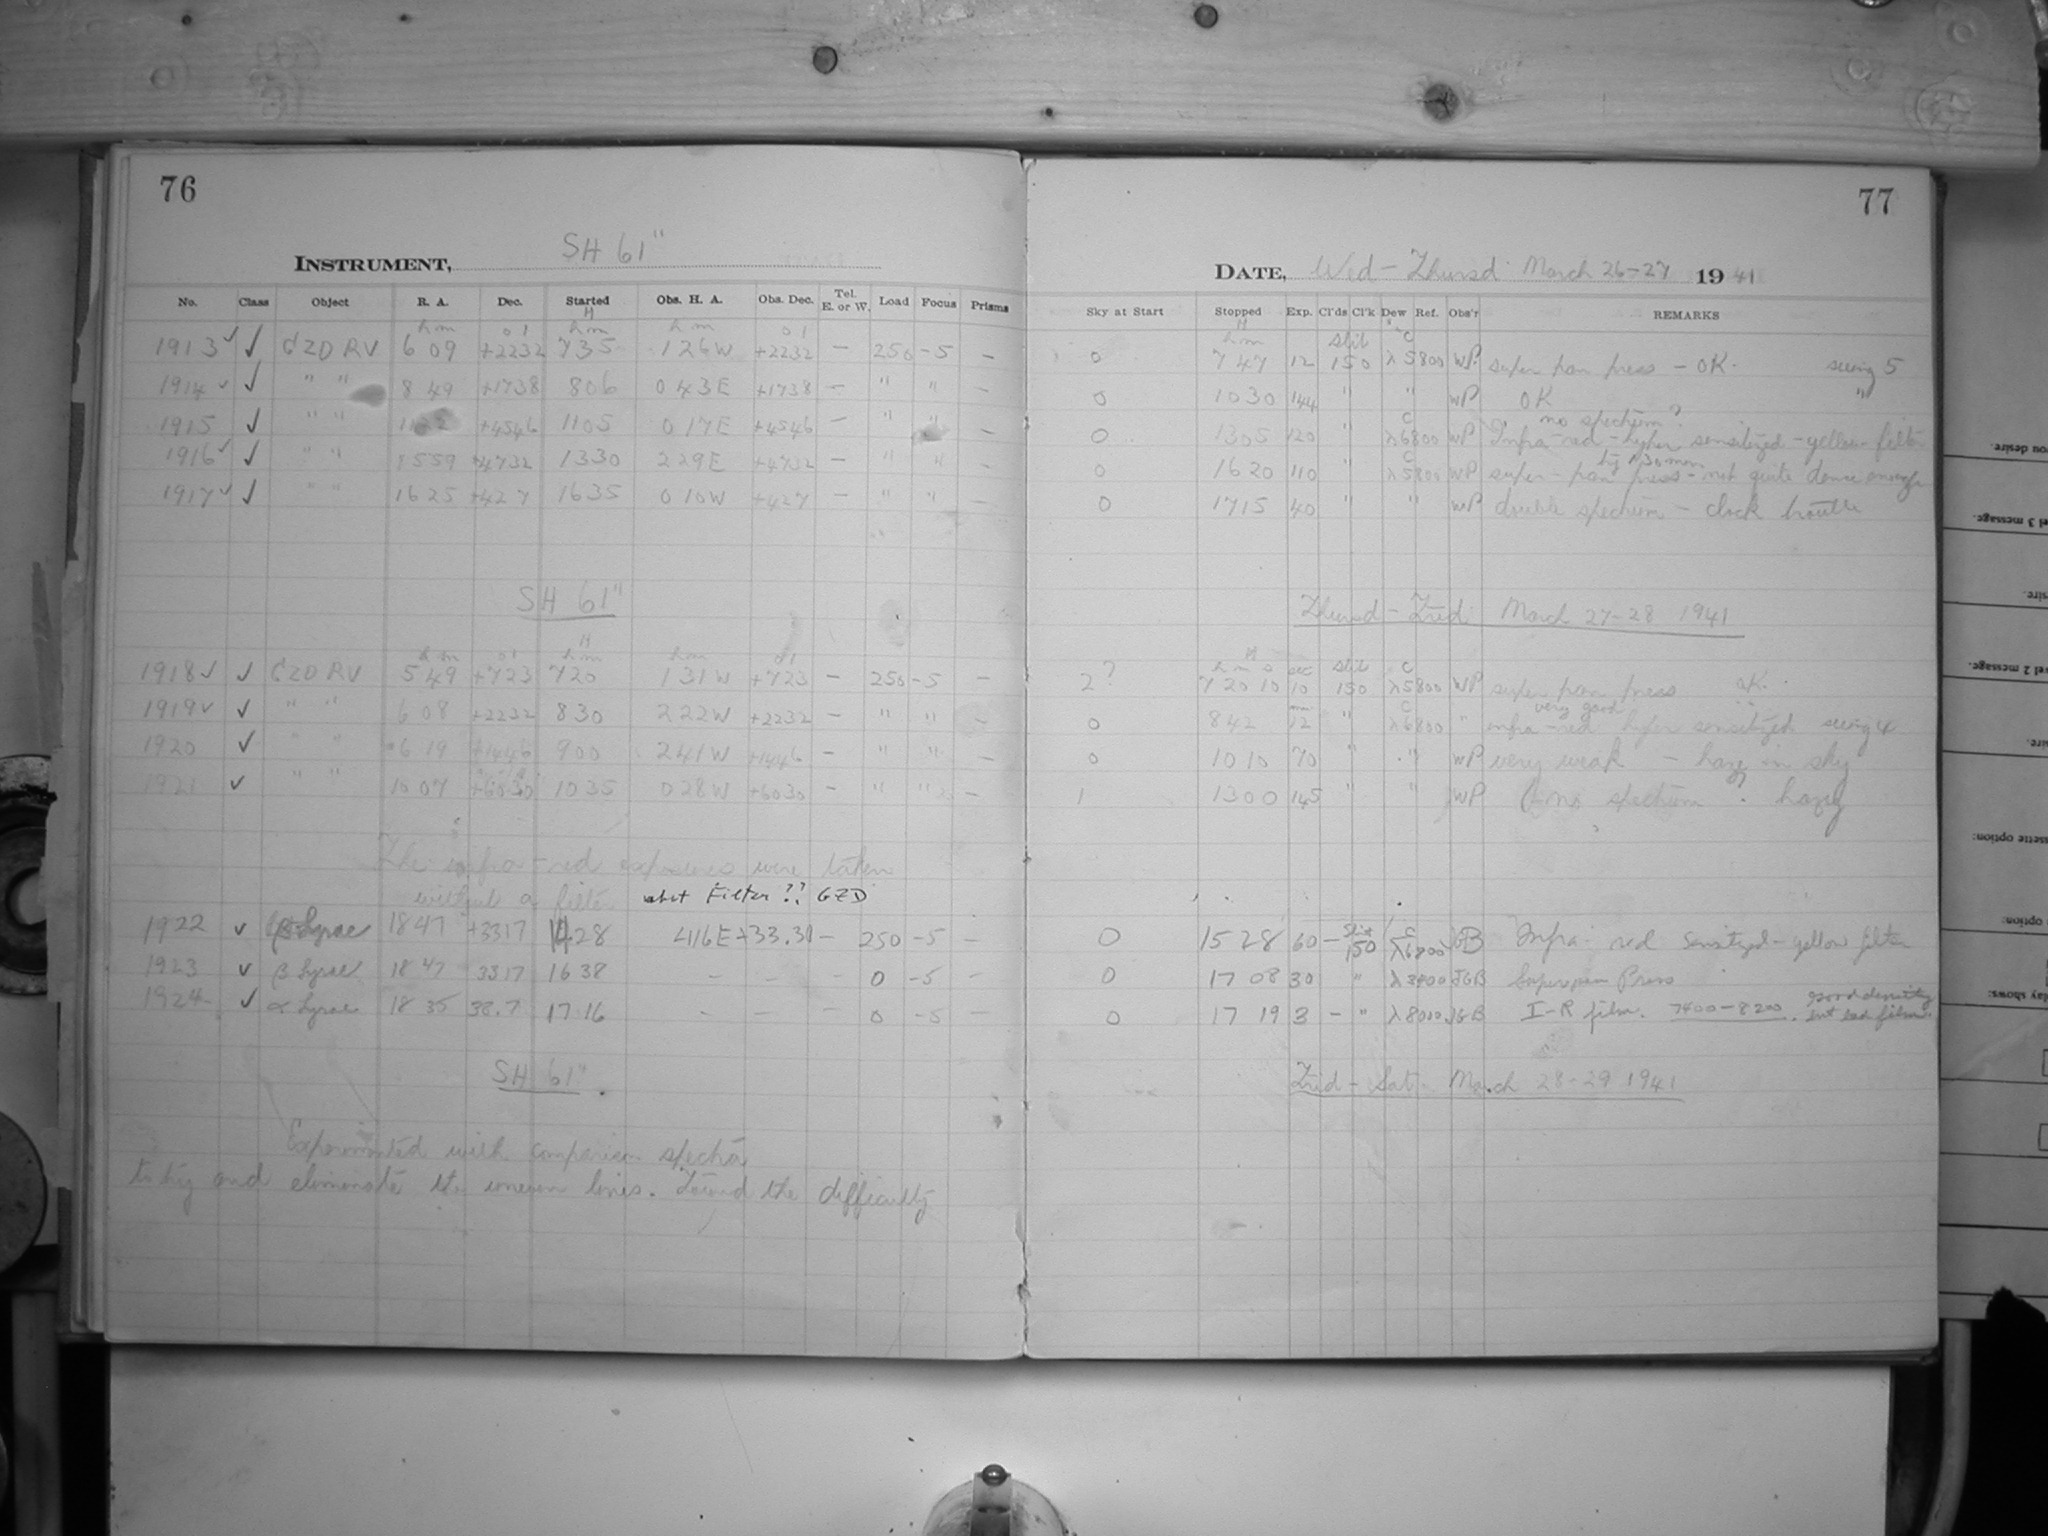 76
INSTRUMENT, SH 61"
No. Class Object R. A. Dec. Started Obs. H. A. Obs. Dec. Tel. E. or W. Load Focus Prisms
h m ° ' H h m h m ° '
1913 ✓ ✓ GZD RV 6 09 +2232 735 126W +2232 — 250 -5 —
1914 ✓ ✓ " " 8 49 +1738 806 043E +1738 — " " —
1915 ✓ " " +4546 1105 017E +4546 — " " —
1916 ✓ ✓ " " 1559 +4732 1330 229E +4732 — " " —
1917 ✓ ✓ " " 1625 +427 1635 010W +427 — " " —
SH 61"
h m ° ' H h m h m ° '
1918 ✓ ✓ GZD RV 5 49 +723 720 131W +723 — 250 -5 —
1919 ✓ ✓ " " 6 08 +2232 830 222W +2232 — " " —
1920 ✓ " " 6 19 +1446 900 241W +1446 — " " —
1921 ✓ " " 10 07 +6030 1035 028W +6030 — " " —
The infra-red exposures were taken
without a filter what Filter?? GZD
1922 ✓ β Lyrae 18 47 +3317 1428 416E +33.31 — 250 -5 —
1923 ✓ β Lyrae 18 47 3317 16 38 — — — 0 -5 —
1924 ✓ α Lyrae 18 35 38.7 17 16 — — — 0 -5 —
SH 61".
Experimented with comparison spectra
to try and eliminate the uneven lines. Found the difficulty
77
DATE, Wed - Thursd March 26-27 1941
Sky at Start Stopped Exp. Cl'ds Cl'k Dew Ref. Obs'r REMARKS
H h m slit C
0 7 47 12 150 λ5800 WP super pan press - OK. seeing 5
0 1030 144 " " WP OK "
no spectrum?
0 1305 120 " C λ6800 WP Infra-red - hyper sensitized - yellow filter
0 1620 110 " C λ5800 WP super-pan press - not quite dense enough
0 1715 40 " " WP double spectrum - clock trouble
Thursd - Frid March 27-28 1941
H h m s sec slit C
2? 7 20 10 10 150 λ5800 WP super pan press OK.
very good
0 842 12 " C λ6800 " infra-red hyper sensitized seeing 4
0 1010 70 " " WP very weak - haze in sky
1 1300 145 " " WP no spectrum? hazy
0 15 28 60 — Slit 150 C λ6800 GB Infra-red sensitized - yellow filter
0 17 08 30 " JGB Superpan Press
0 17 19 3 — " λ8000 JGB I-R film. 7400-8200. good density but bad film.
Frid - Sat - March 28-29 1941
you desire.
el 3 message.
sire.
el 2 message.
ire.
ssette option:
option:
lay shows: